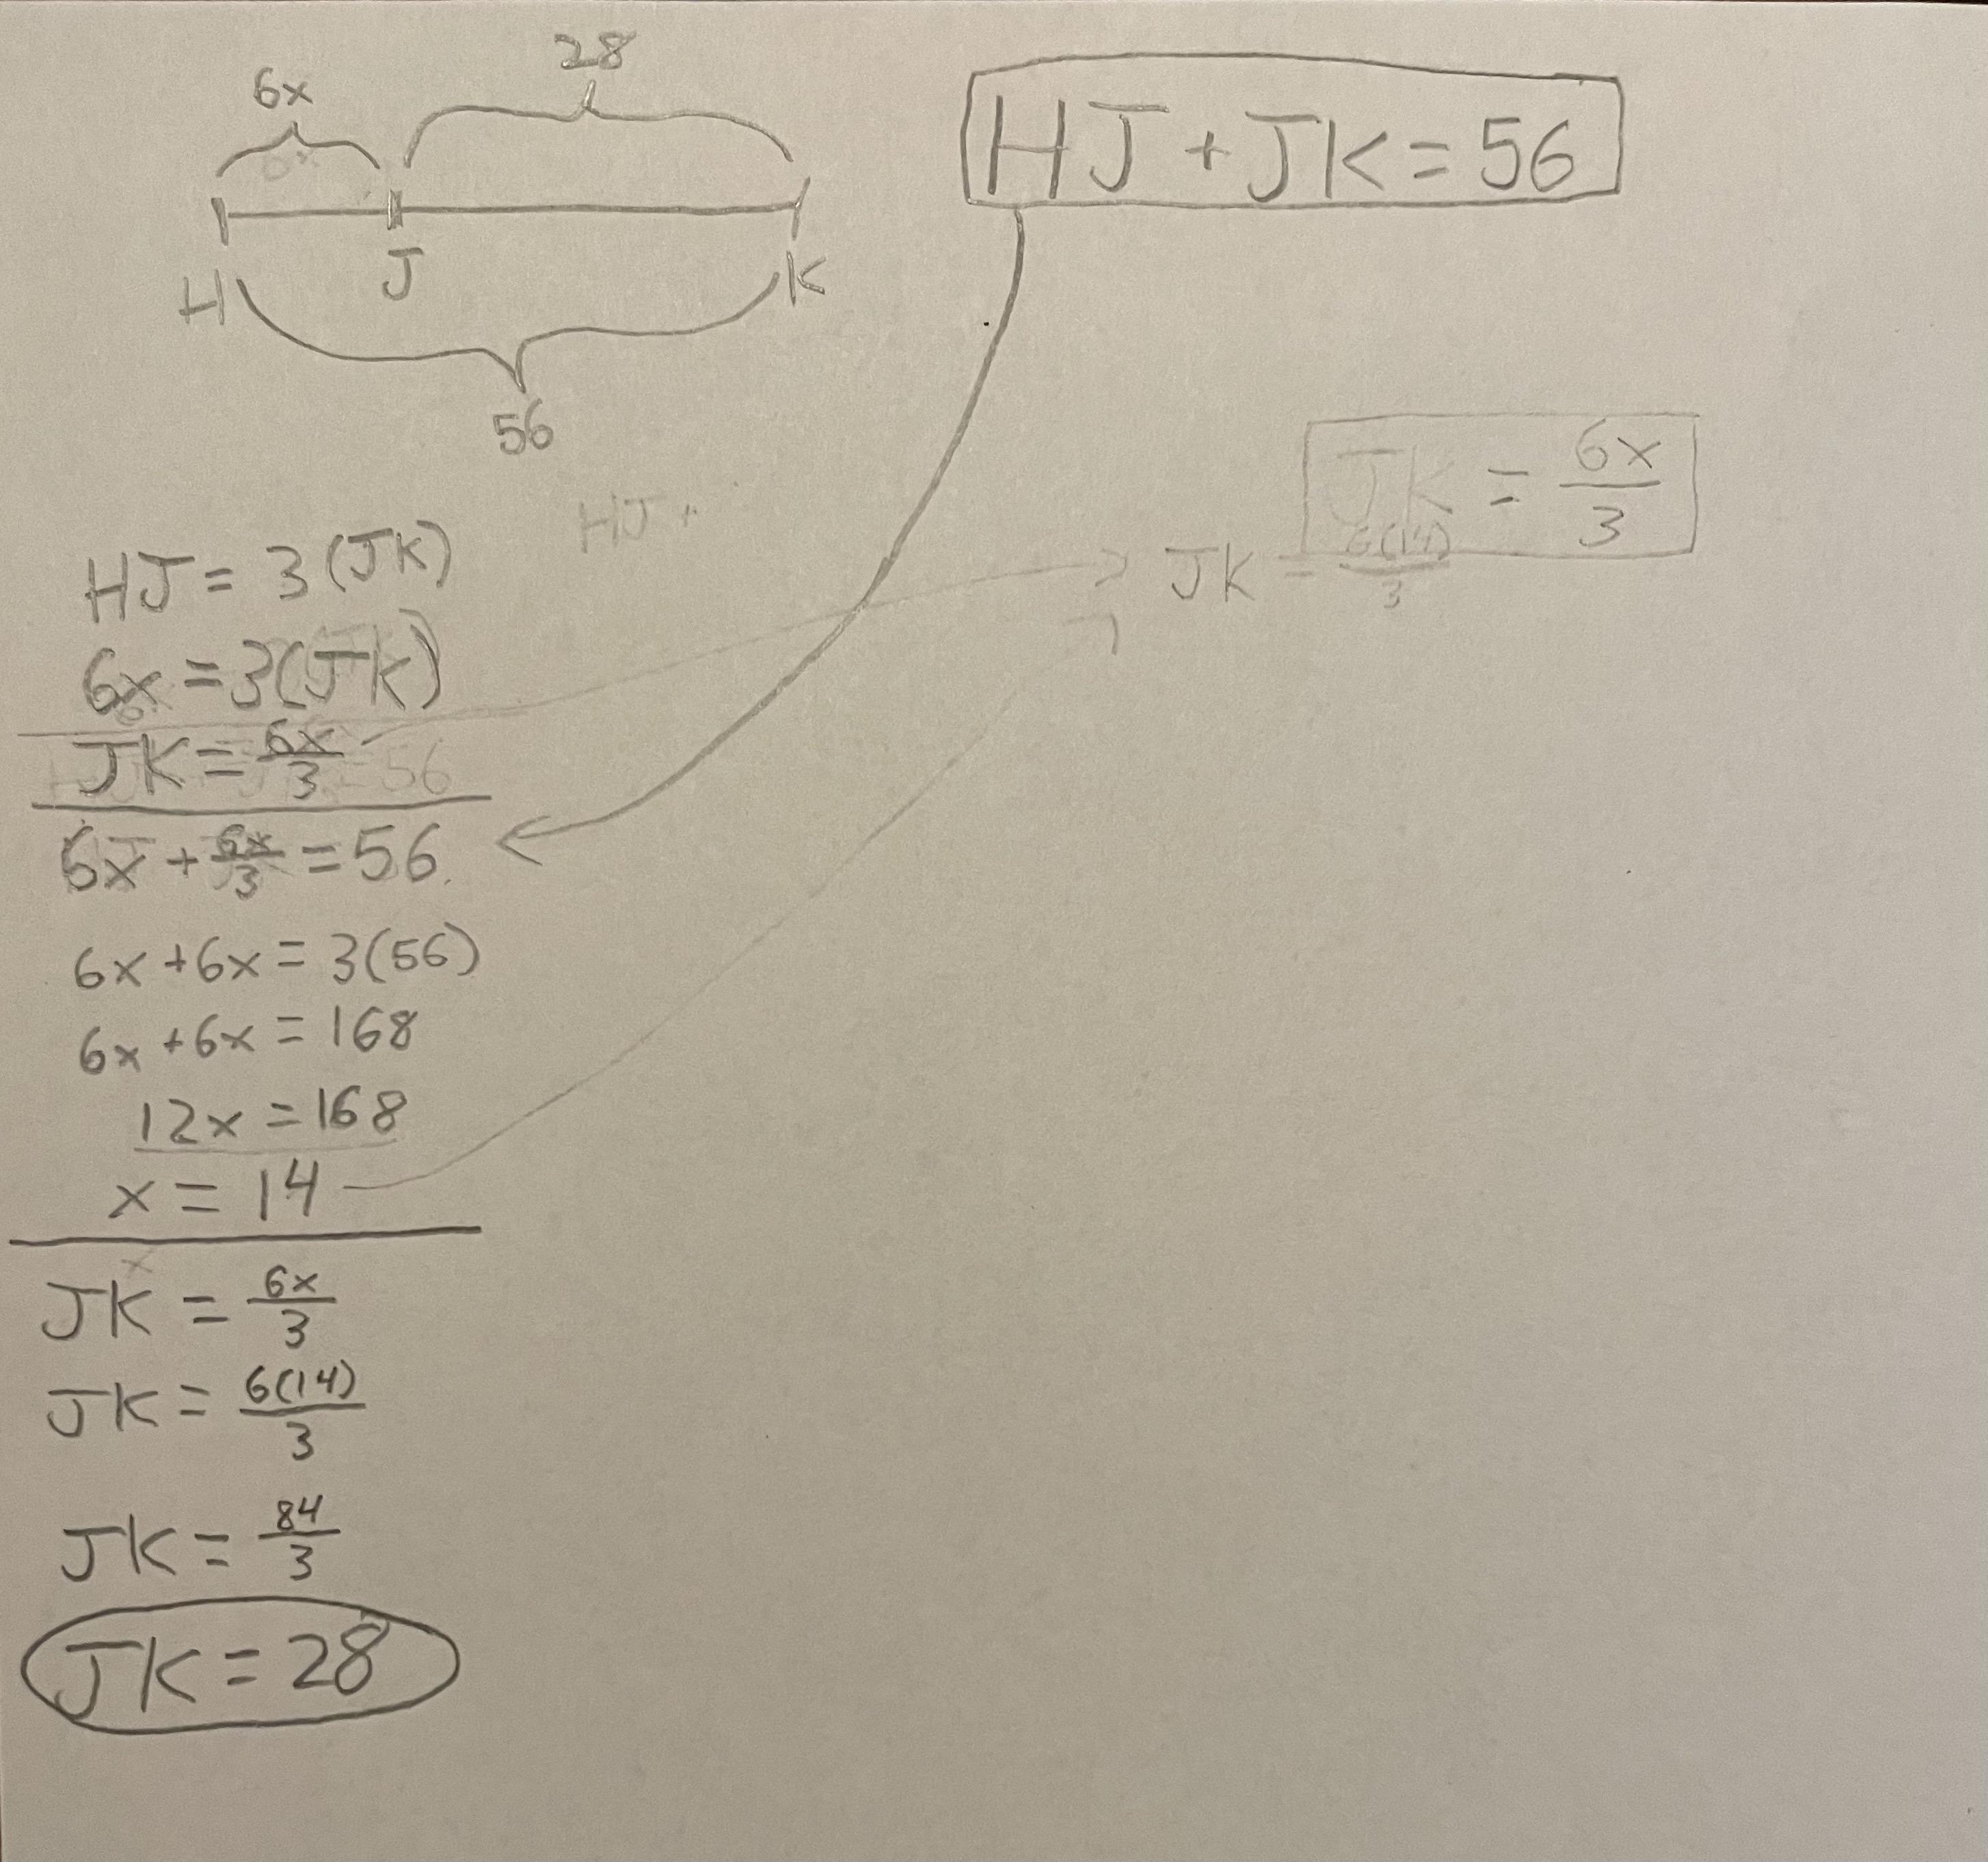 28
6x
HJ + JK = 56
H J K
56
JK = 6x/3
HJ +
HJ = 3(JK)
JK = 6(14)/3
6x = 3(JK)
JK = 6x/3
6x + 6x/3 = 56
6x + 6x = 3(56)
6x + 6x = 168
12x = 168
x = 14
JK = 6x/3
JK = 6(14)/3
JK = 84/3
JK = 28